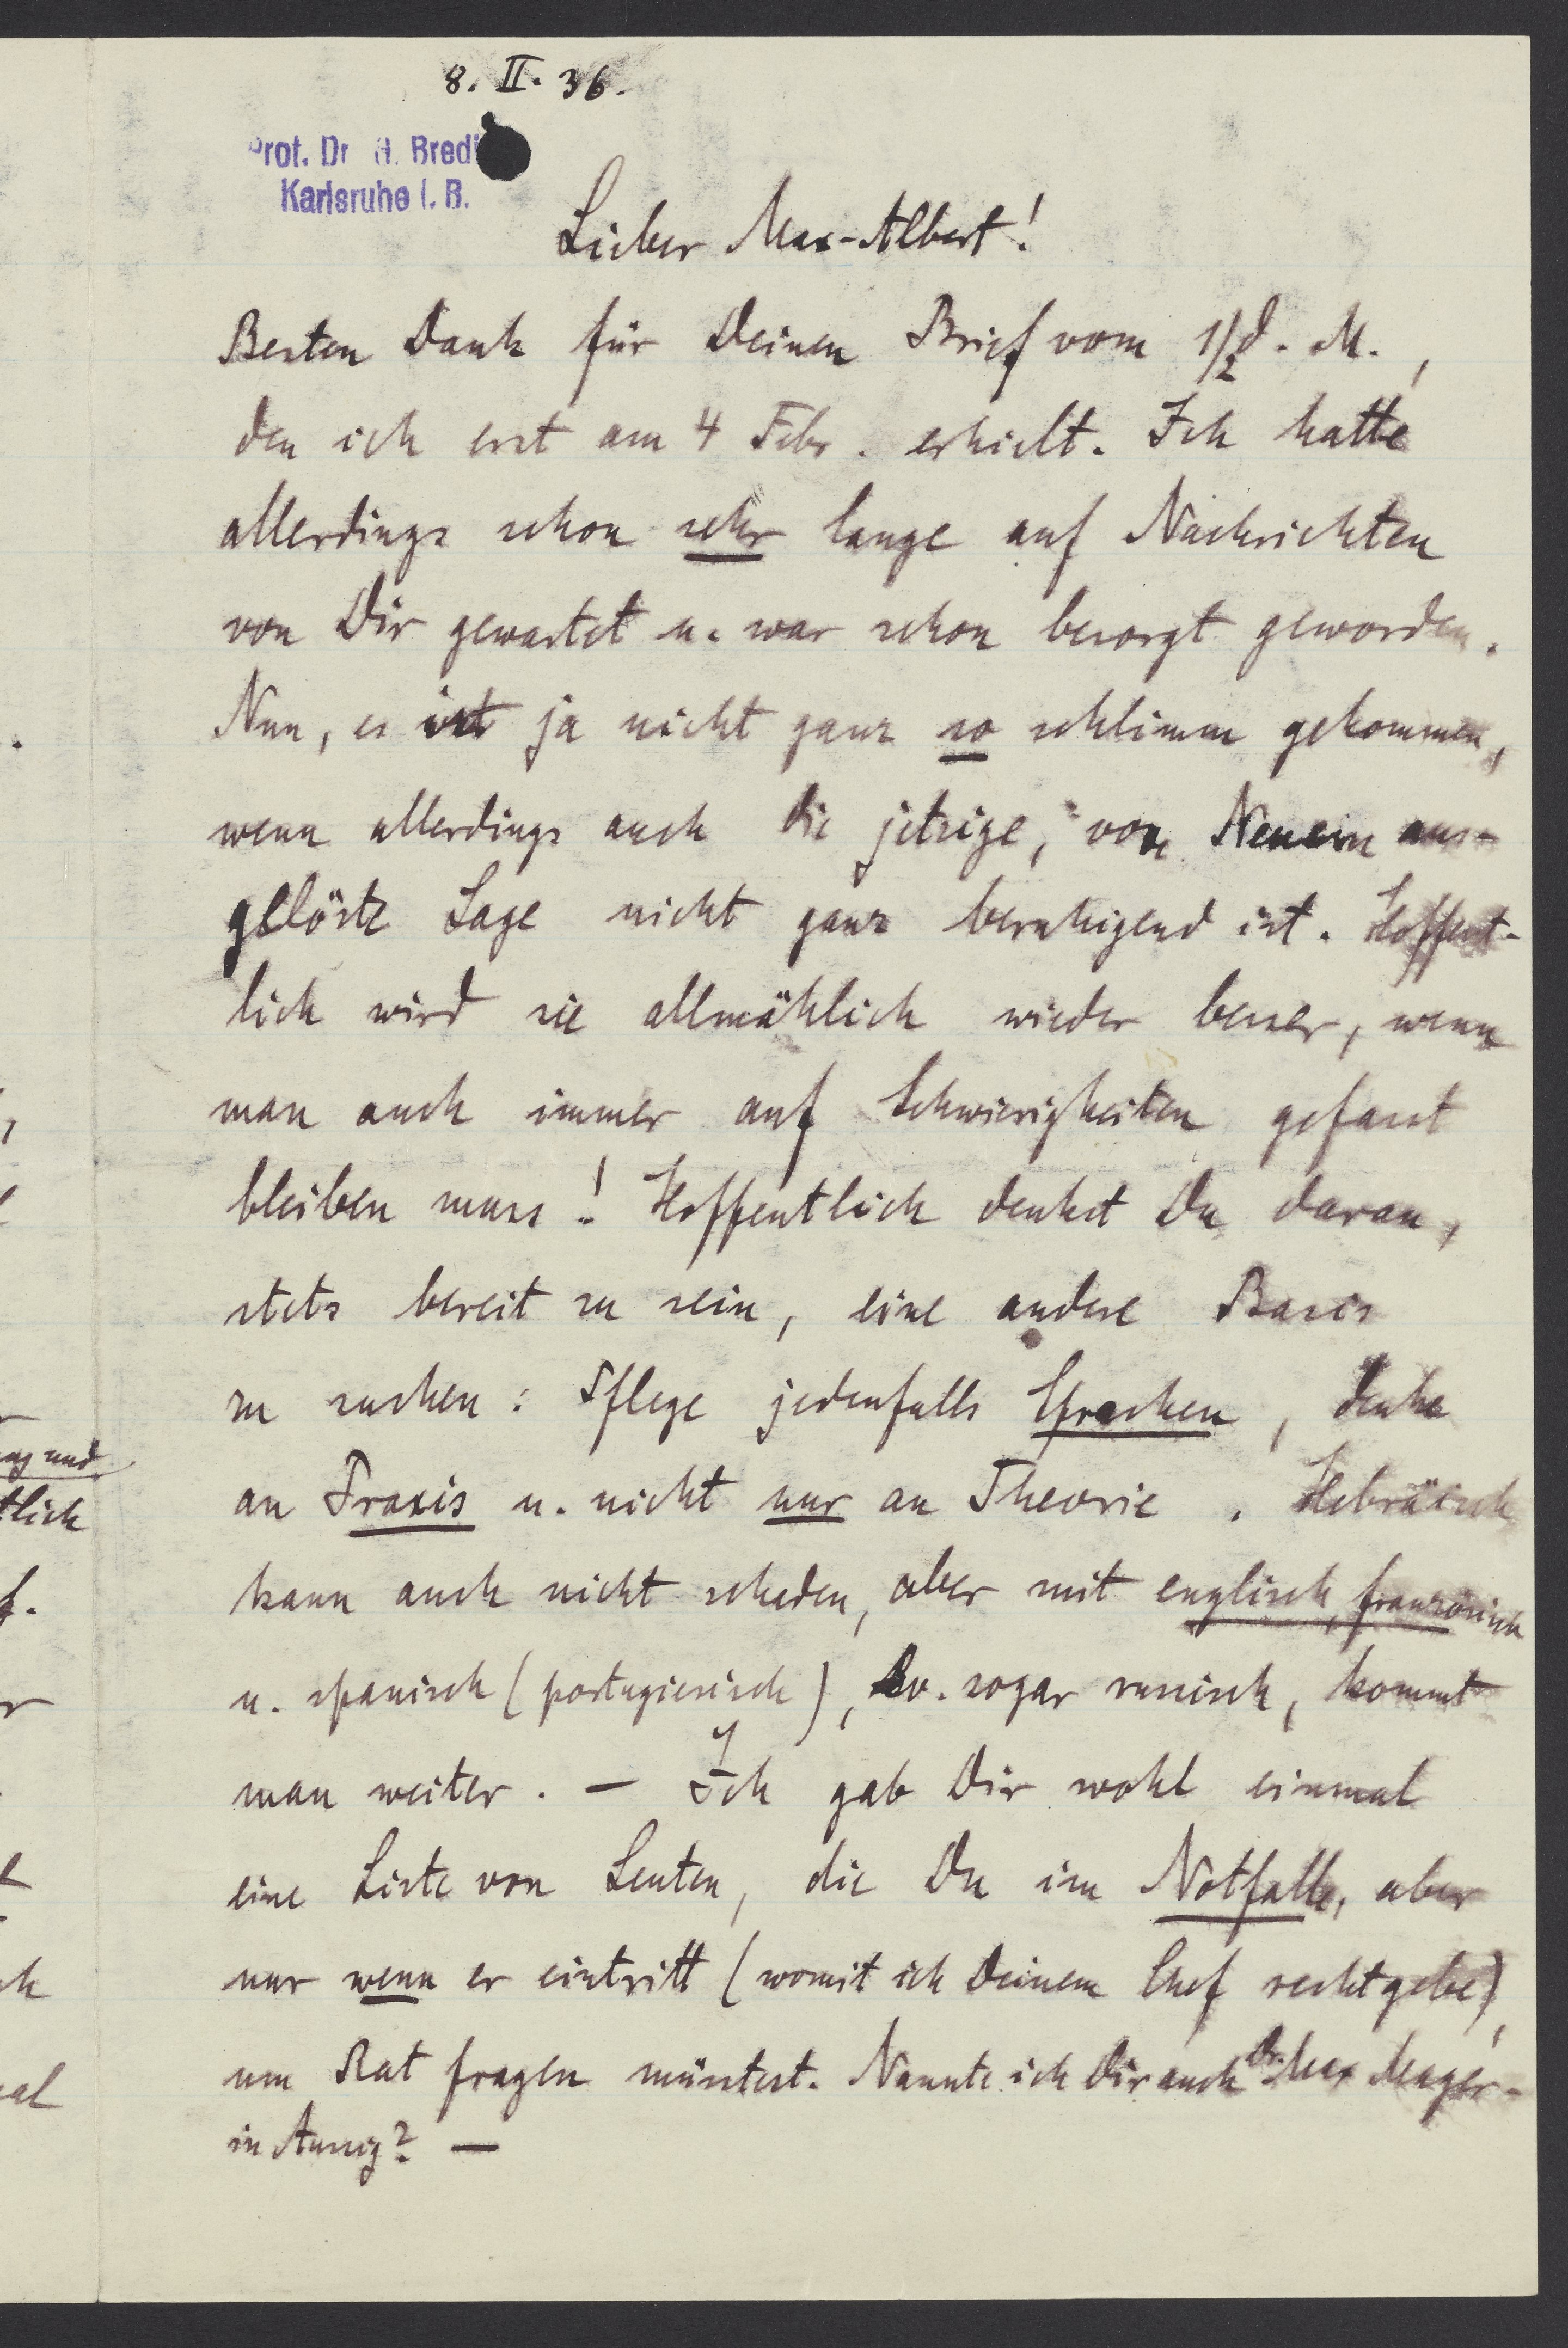 8. II. 36.
Prof. Dr. G. Bredi
Karlsruhe i. B.
Lieber Max-Albert!
Besten Dank für Deinen Brief vom 1/2 d. M.,
den ich erst am 4 Febr. erhielt. Ich hatte
allerdings schon sehr lange auf Nachrichten
von Dir gewartet u. war schon besorgt geworden.
Nun, es ist ja nicht ganz so schlimm gekommen,
wenn allerdings auch die jetzige, von Neuem aus-
gelöste Lage nicht ganz beruhigend ist. Hoffent-
lich wird sie allmählich wieder besser, wenn
man auch immer auf Schwierigkeiten gefasst
bleiben muss! Hoffentlich denkst Du daran,
stets bereit zu sein, eine andere Basis
zu suchen: Pflege jedenfalls Sprachen, denke
an Praxis u. nicht nur an Theorie. Hebräisch
kann auch nicht schaden, aber mit englisch, französisch
u. spanisch (portugiesisch), ev. sogar russisch, kommt
man weiter. — Ich gab Dir wohl einmal
eine Liste von Leuten, die Du im Notfalle, aber
nur wenn er eintritt (womit ich Deinem Chef rechtgebe),
um Rat fragen müsstest. Nannte ich Dir auch Dr. Max Mayer
in Aussig? —
ng und
tlich